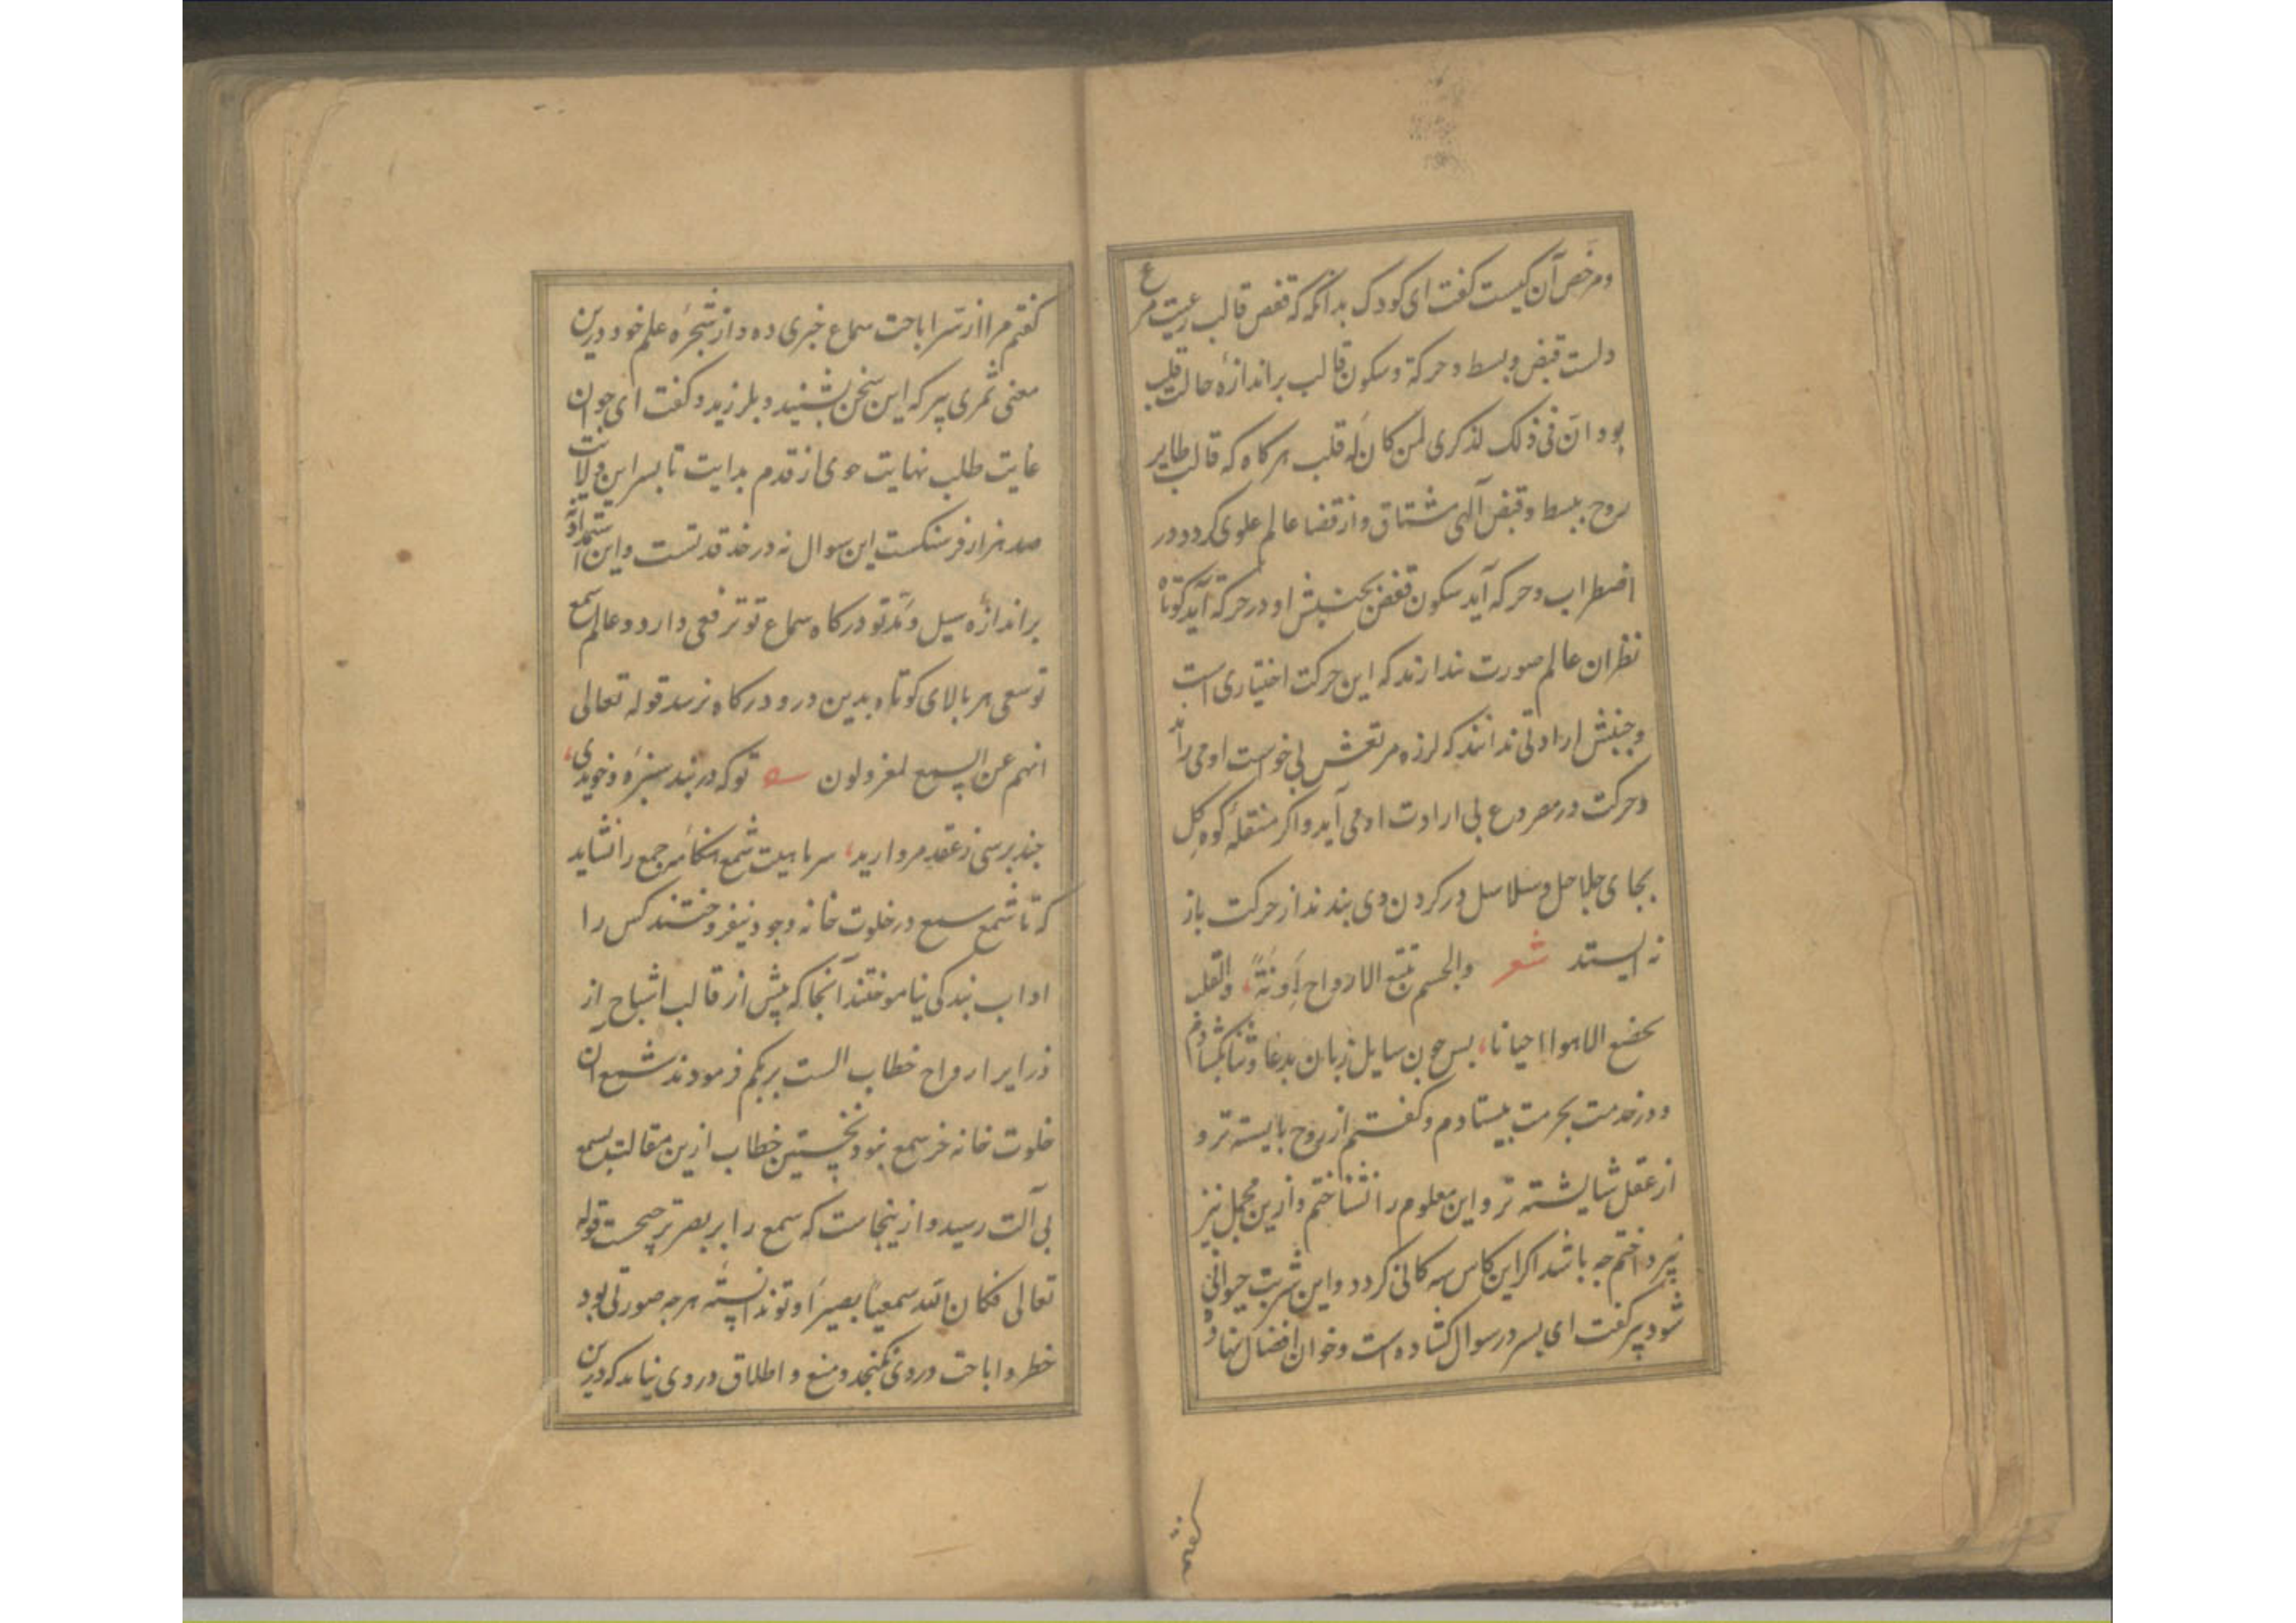 ومرخص آن کیست گفت ای کودک بدانکه قفص قالب رعیت مر
دلست قبض و بسط و حرکة و سکون قالب براندازهٔ حالت قلب
بود ان فی ذلک لذکری لمن کان له قلب هرکاه که قالب طایر
روح ببسط و قبض آلهی مشتاق واز قضا عالم علوی کردد در
اضطراب و حرکه آید سکون قفص بجنبش او در حرکة آید کوتاه
نظران عالم صورت ندارند که این حرکت اختیاری است
و جنبش ارادتی ندانند که لرزه مرتعش بی خواست او می
وحرکت در مصروع بی ارادت او می آید واکر منتقلهٔ کوه کل
بجای جلاجل و سلاسل در کردن وی بندند از حرکت باز
نه ایستد شعر والجسم تتبع الارواح آونةً، والقلب
یخضع الاهوا احیانا، بس چون سایل زبان بدعا و ثنا بکشادم
و در خدمت بحرمت بیستادم و کفتم از روح بایسته تر و
از عقل شایسته تر و این معلوم را نشناختم و ازین مجمل نیز
نپرداختم جه باشد اکر این کاس سه کانی کردد و این شربت حیوانی
شود پیر کفت ای بسر در سوال کشاده است و خوان افضال نهاده
کفتم
کفتم مرا از سر اباحت سماع خبری ده و از شجرهٔ علم خود درین
معنی ثمری پیر که این سخن بشنید و بلرزید و کفت ای جوان
غایت طلب نهایت جوی از قدم بدایت تا بسر این ولایت
صد هزار فرسنکست این سوال نه در خد قد تست و این استمداد نه
براندازه سیل و مد تو درکاه سماع تو ترفعی دارد و عالم سمع
توسعی هر بالای کوتاه بدین در و درکاه نرسد قوله تعالی
انهم عن السمع لمعزولون تو که در بند سبزه و خویدی،
جند برسی ز عقد مروارید، سرمابیت شمع هنکامه جمع را نشاید
که تا شمع سمع در خلوت خانه وجود نیفروختند کس را
اداب بندکی نیاموختند آنجا که پیش از قالب اشباح از
ذرایر ارواح خطاب الست بربکم فرمودند شمع آن
خلوت خانه خر سمع نبود نخستین خطاب ازین مقالت بسمع
بی آلت رسید و ازینجاست که سمع را بر بصر ترجیحست قوله
تعالی فکان الله سمیعًا بصیرًا و تو ندانسته هرجه صورتی بود
خطر و اباحت در وی نکنجد و منع و اطلاق در وی نیاید که درین